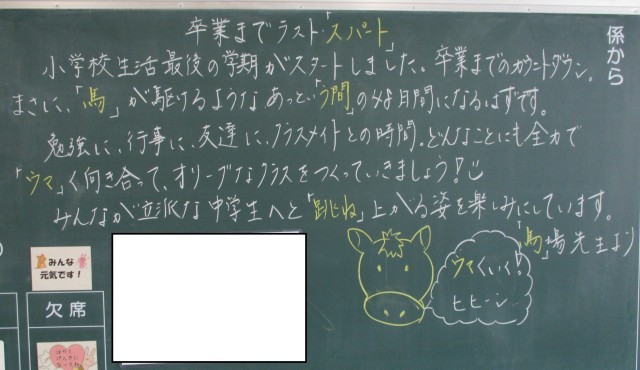 卒業までラスト「スパート」
係から
小学校生活最後の学期がスタートしました。卒業までのカウントダウン。
まさに、「馬」が駆けるようなあっという間の
月間になるはずです。
勉強に、行事に、友達に、クラスメイトとの時間。どんなことにも全力で
「ウマ」く向き合って、オリーブなクラスをつくっていきましょう!
みんなが立派な中学生へと「跳ね」上がる姿を楽しみにしています。
「馬」場先生より
ウマくいく!
ヒヒーン
みんな
元気です!
欠席